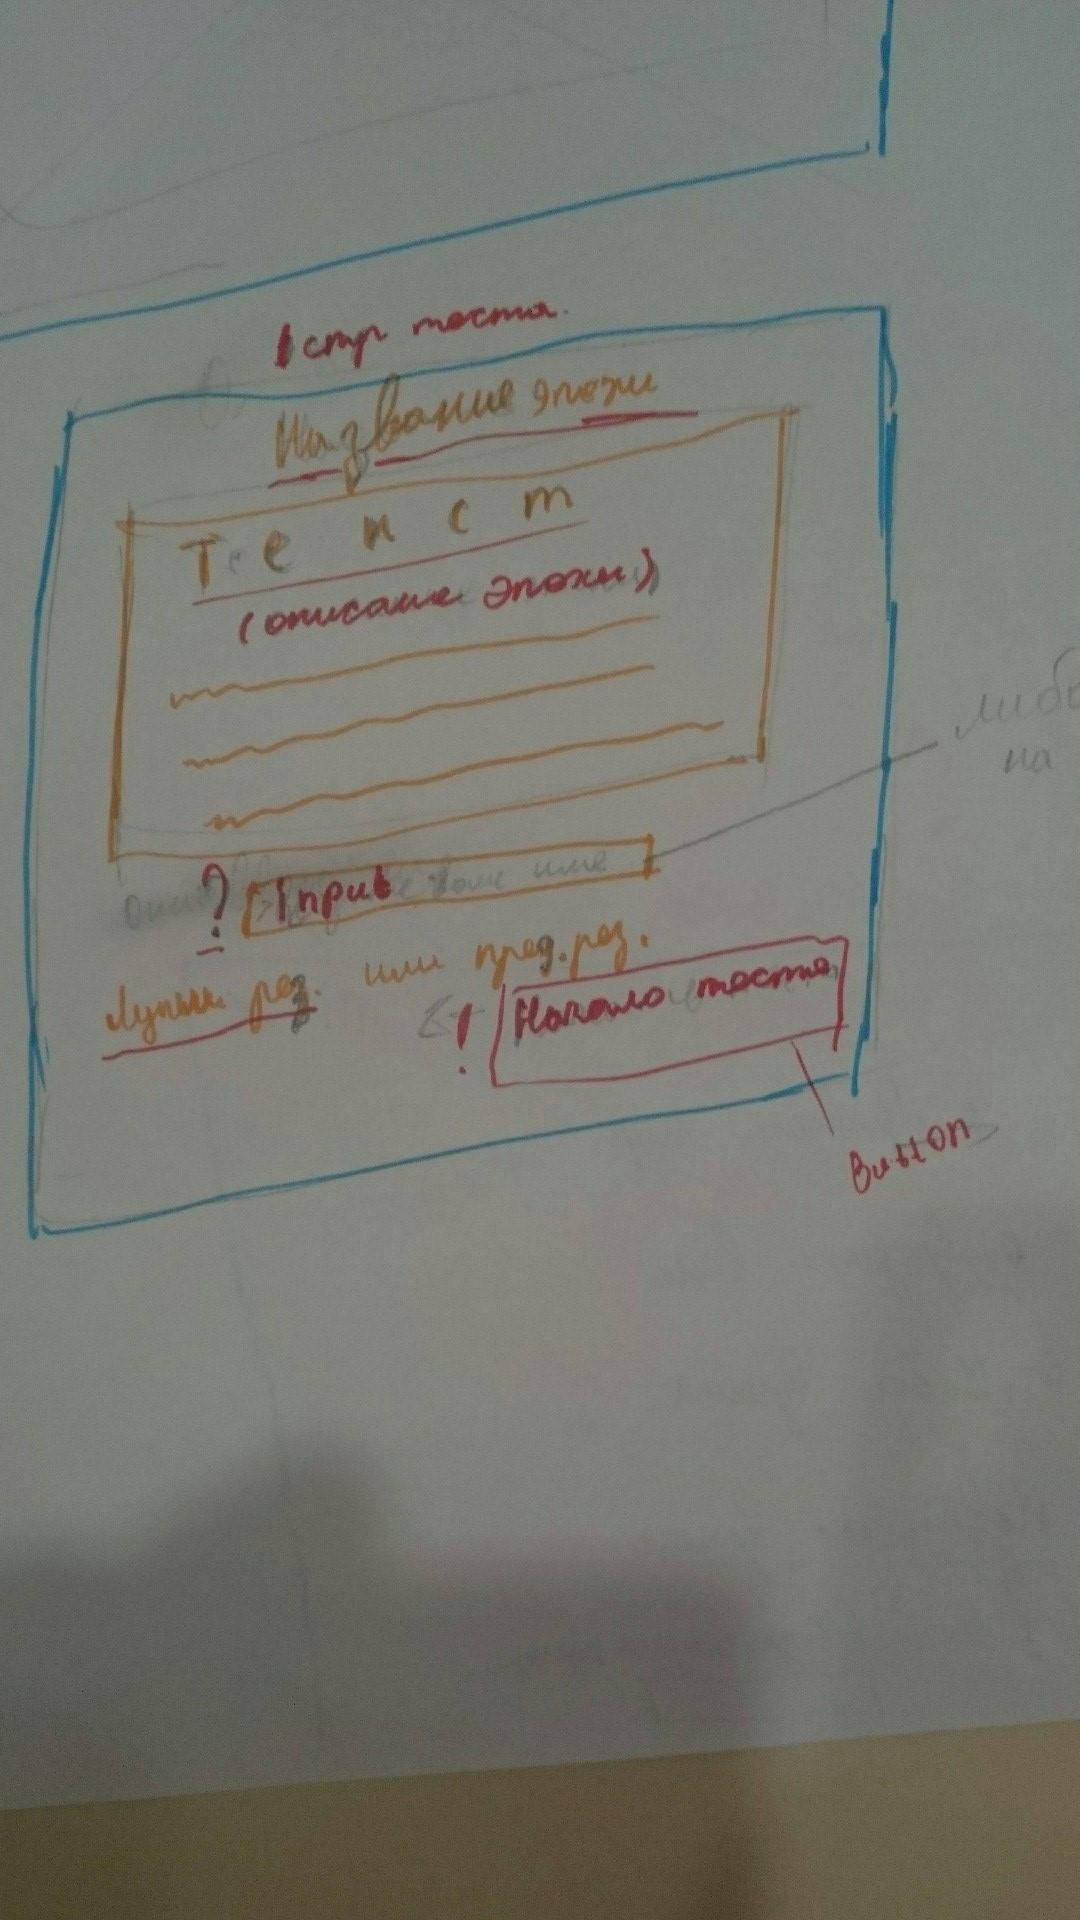 1 стр теста.
Название эпохи
Текст
(описание эпохи)
либо
на
? Input
Лучший рез. или пред. рез.
! Начало теста
Button